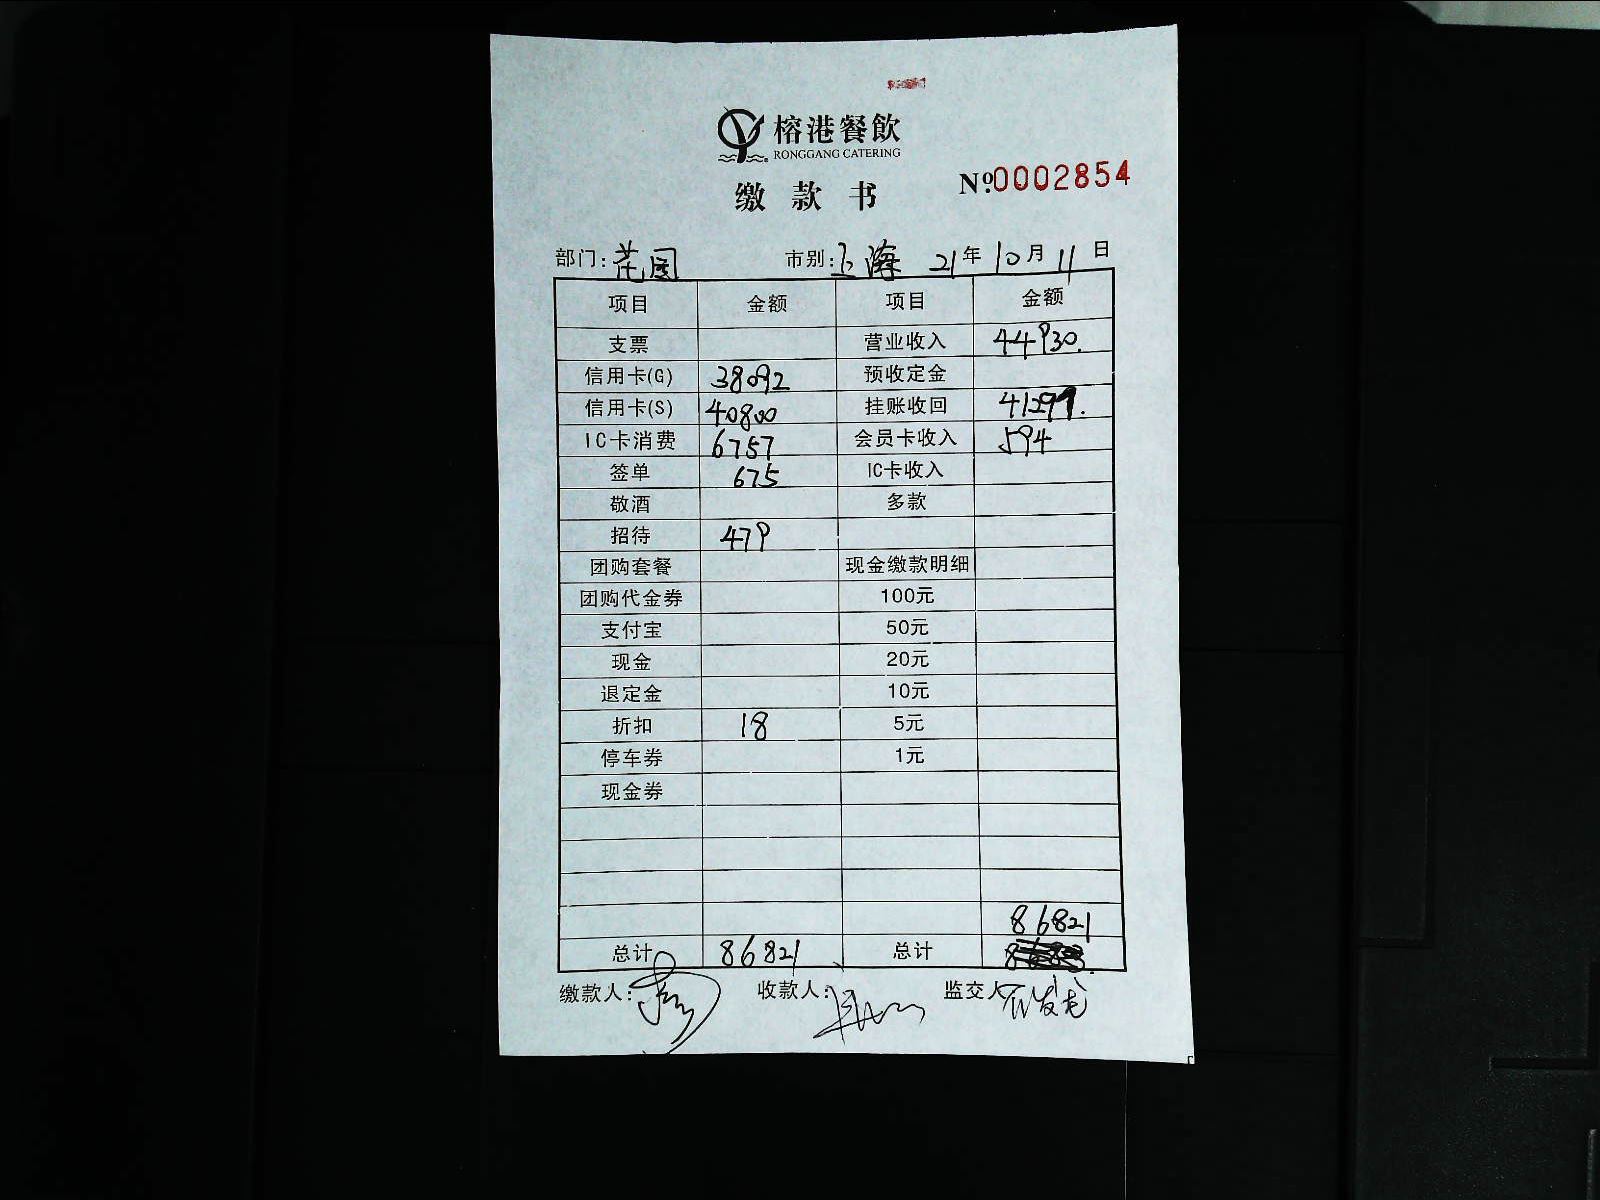 榕港餐飲
RONGGANG CATERING
缴款书
№0002854
部门:花园 市别:上海 21年10月11日
项目 金额 项目 金额
支票 营业收入 44930.
信用卡(G) 38092 预收定金
信用卡(S) 40800 挂账收回 41297.
IC卡消费 6757 会员卡收入 594
签单 675 IC卡收入
敬酒 多款
招待 479
团购套餐 现金缴款明细
团购代金券 100元
支付宝 50元
现金 20元
退定金 10元
折扣 18 5元
停车券 1元
现金券
86821
总计 86821 总计
缴款人: 收款人: 监交人